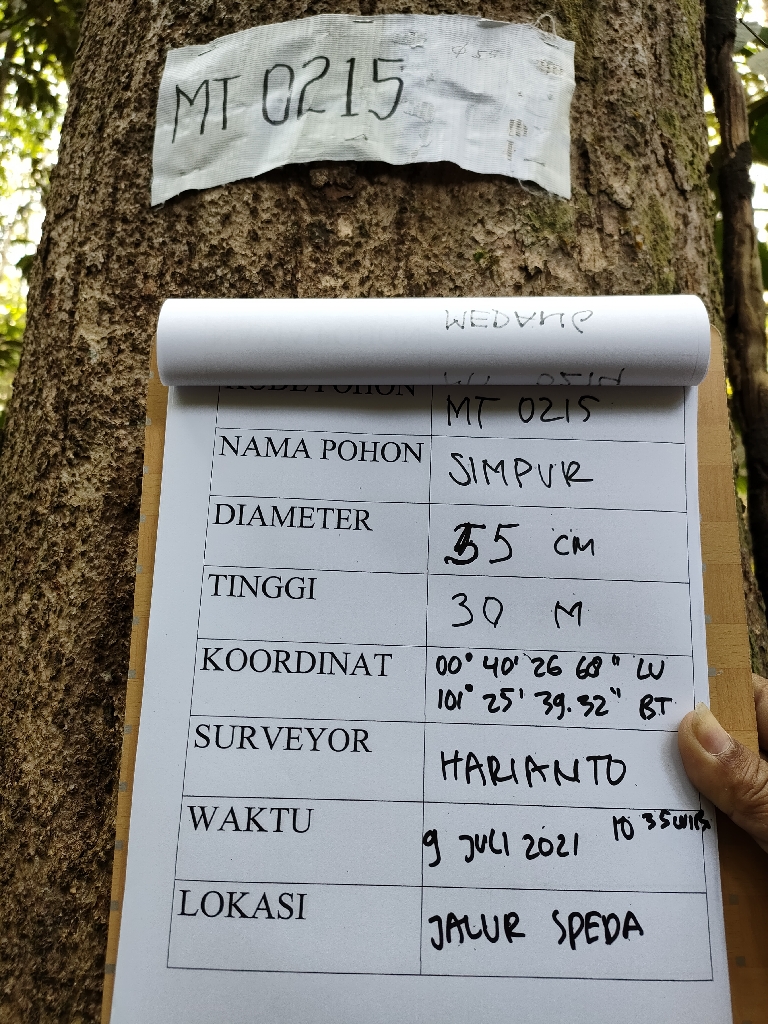 MT 0215
WEDANG
KODE POHON MT 0215
NAMA POHON SIMPUR
DIAMETER 55 CM
TINGGI 30 M
KOORDINAT 00° 40' 26 68" LU
101° 25' 39.32" BT
SURVEYOR HARIANTO
WAKTU 9 JULI 2021 10 35 WIB
LOKASI JALUR SPEDA